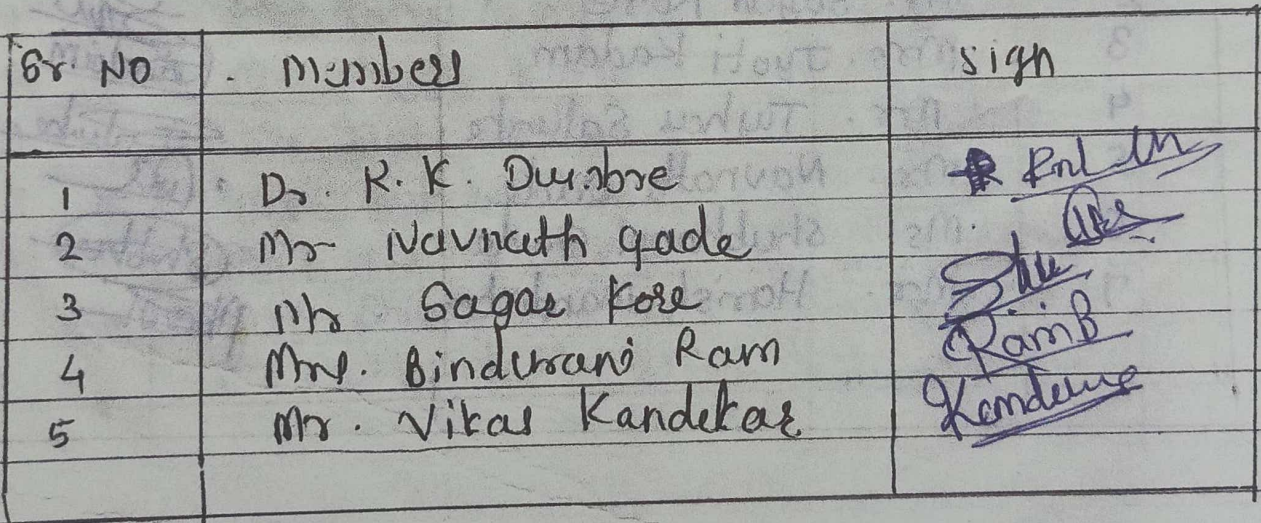 Sr. No . Members sign
1 Dr. R. K. Dumbre
2 Mr Navnath gade
3 Mr Sagar Kore
4 Mrs. Bindurani Ram RamB
5 Mr. Vikas Kandekar